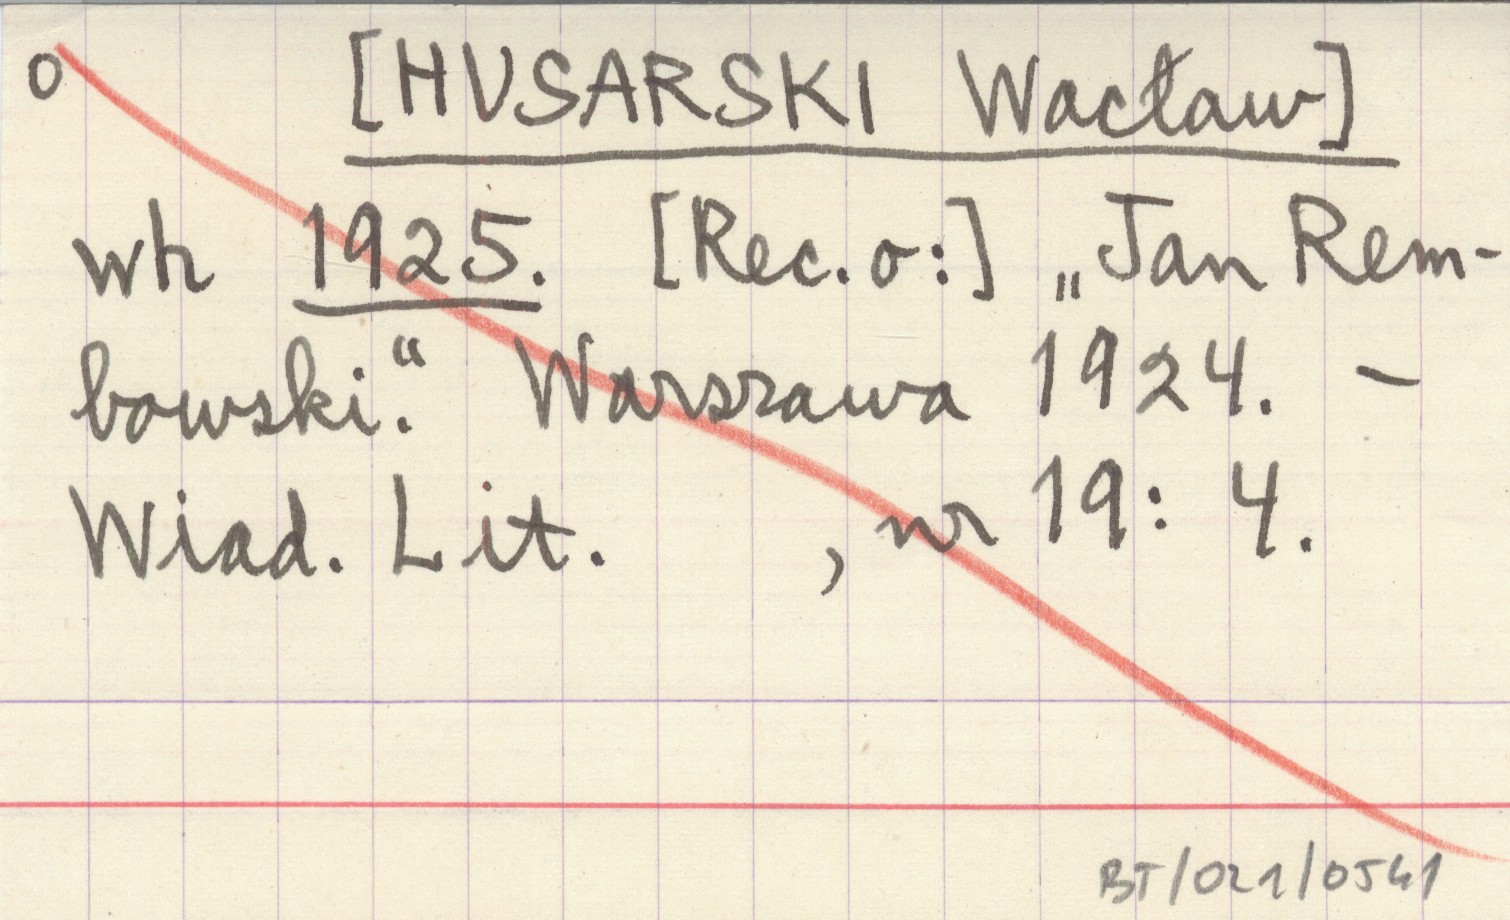 o [HUSARSKI Wacław]
wh 1925. [Rec. o:] „Jan Rem-
bowski.“ Warszawa 1924. –
Wiad. Lit. , nr 19: 4.
BT/021/0541